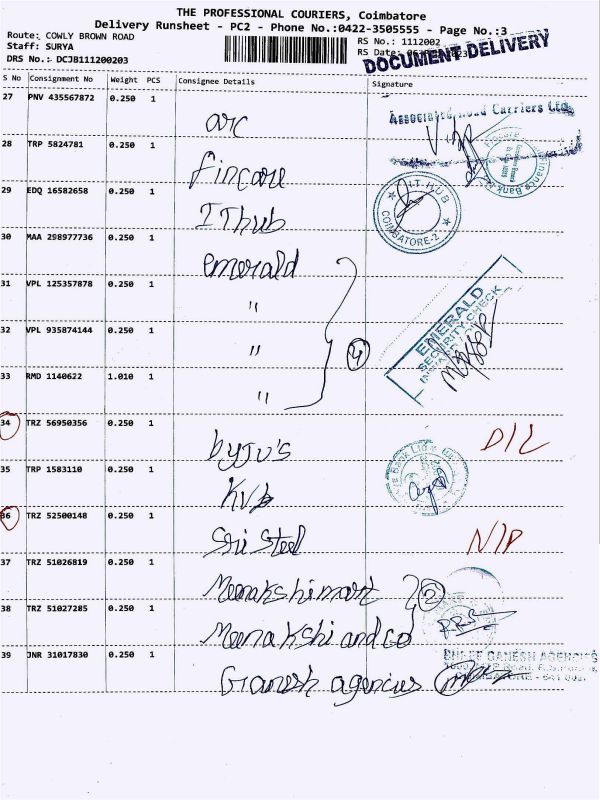 THE PROFESSIONAL COURIERS, Coimbatore
Delivery Runsheet - PC2 - Phone No.:0422-3505555 - Page No.:3
Route: COWLY BROWN ROAD
RS No.: 1112002
Staff: SURYA
RS Date:
DOCUMENT DELIVERY
DRS No.: DCJB111200203
S No Consignment No Weight PCS Consignee Details Signature
27 PNV 435567872 0.250 1 arc
Associated Road Carriers Ltd.
28 TRP 5824781 0.250 1 fincare
29 EDQ 16582658 0.250 1 IThub
I.T.HUB
COIMBATORE-2
30 MAA 298977736 0.250 1 emerald
31 VPL 125357878 0.250 1 "
32 VPL 935874144 0.250 1 " 4
EMERALD
SECURITY CHECK
33 RMD 1140622 1.010 1 "
34 TRZ 56950356 0.250 1 byju's D/L
35 TRP 1583110 0.250 1 KVB
36 TRZ 52500148 0.250 1 Sri Steel N/P
37 TRZ 51026819 0.250 1 Meenakshi mart 2
38 TRZ 51027285 0.250 1 Meenakshi and co
39 JNR 31017830 0.250 1 Ganesh agencies
SHREE GANESH AGENCIES